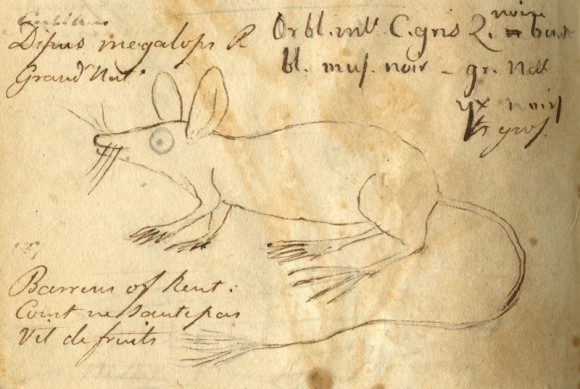 Dipus megalops R
Grand. Nat.
Or bl. int. C. gris 2. noir
bl. mus. noir - gr. Nat
yx noirs
tr gros.
Barrens of Kent:
Court ne saute pas
Vit de fruits